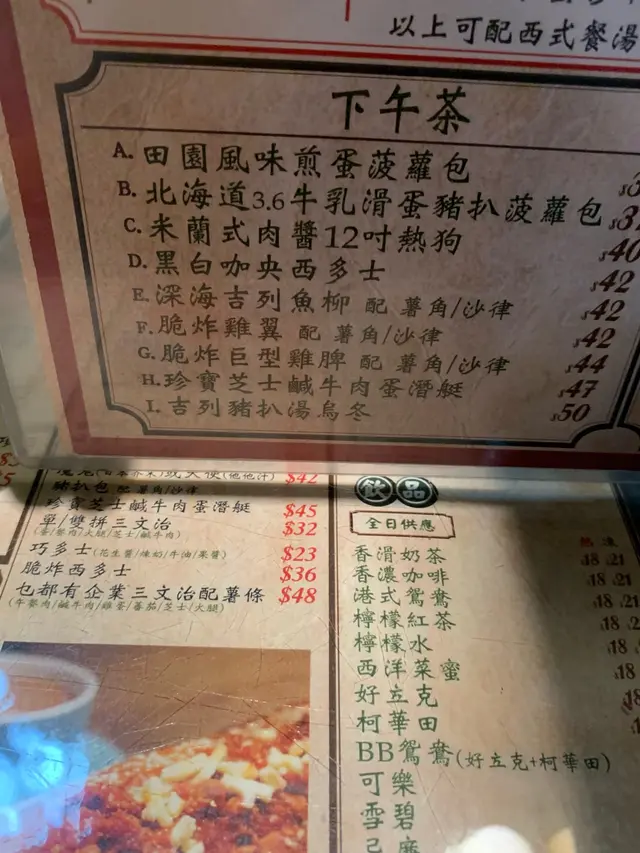 以上可配西式餐湯
下午茶
A. 田園風味煎蛋菠蘿包
B. 北海道3.6牛乳滑蛋豬扒菠蘿包 $37
C. 米蘭式肉醬12吋熱狗 $40
D. 黑白咖央西多士 $42
E. 深海吉列魚柳 配 薯角/沙律 $42
F. 脆炸雞翼 配 薯角/沙律 $42
G. 脆炸巨型雞脾 配 薯角/沙律 $44
H. 珍寶芝士鹹牛肉蛋潛艇 $47
I. 吉列豬扒湯烏冬 $50
$42
豬扒包 配薯角/沙律
珍寶芝士鹹牛肉蛋潛艇 $45
單/雙拼三文治 $32
(蛋/餐肉/火腿/芝士/鹹牛肉)
巧多士(花生醬/煉奶/牛油/果醬) $23
脆炸西多士 $36
乜都有企業三文治配薯條 $48
(午餐肉/鹹牛肉/雞蛋/蕃茄/芝士/火腿)
飲品
全日供應
熱 凍
香滑奶茶 $18 $21
香濃咖啡 $18 $21
港式鴛鴦 $18 $21
檸檬紅茶 $18
檸檬水 $18
西洋菜蜜
好立克
柯華田
BB鴛鴦(好立克+柯華田)
可樂
雪碧